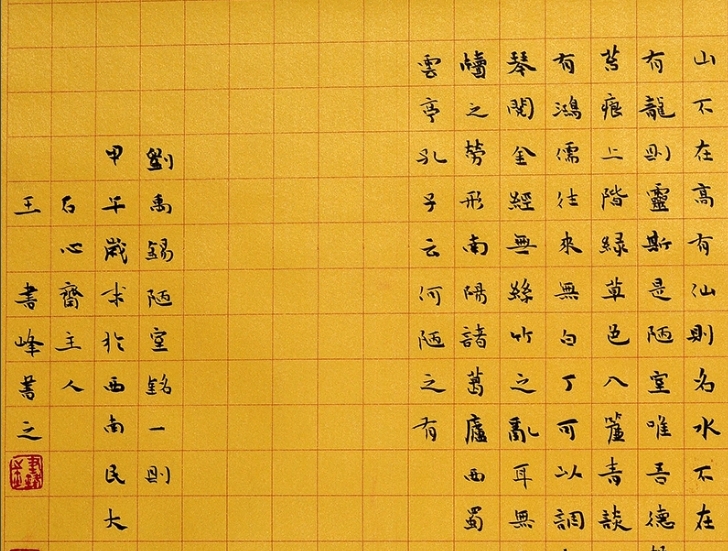 山不在高有仙則名水不在
有龍則靈斯是陋室唯吾德
苔痕上階緑草色入簾青談
有鴻儒往來無白丁可以調
琴閱金經無絲竹之亂耳無
牘之勞形南陽諸葛廬西蜀
雲亭孔子云何陋之有
劉禹錫陋室銘一則
甲午歲末於西南民大
石心齋主人
王書峰書之